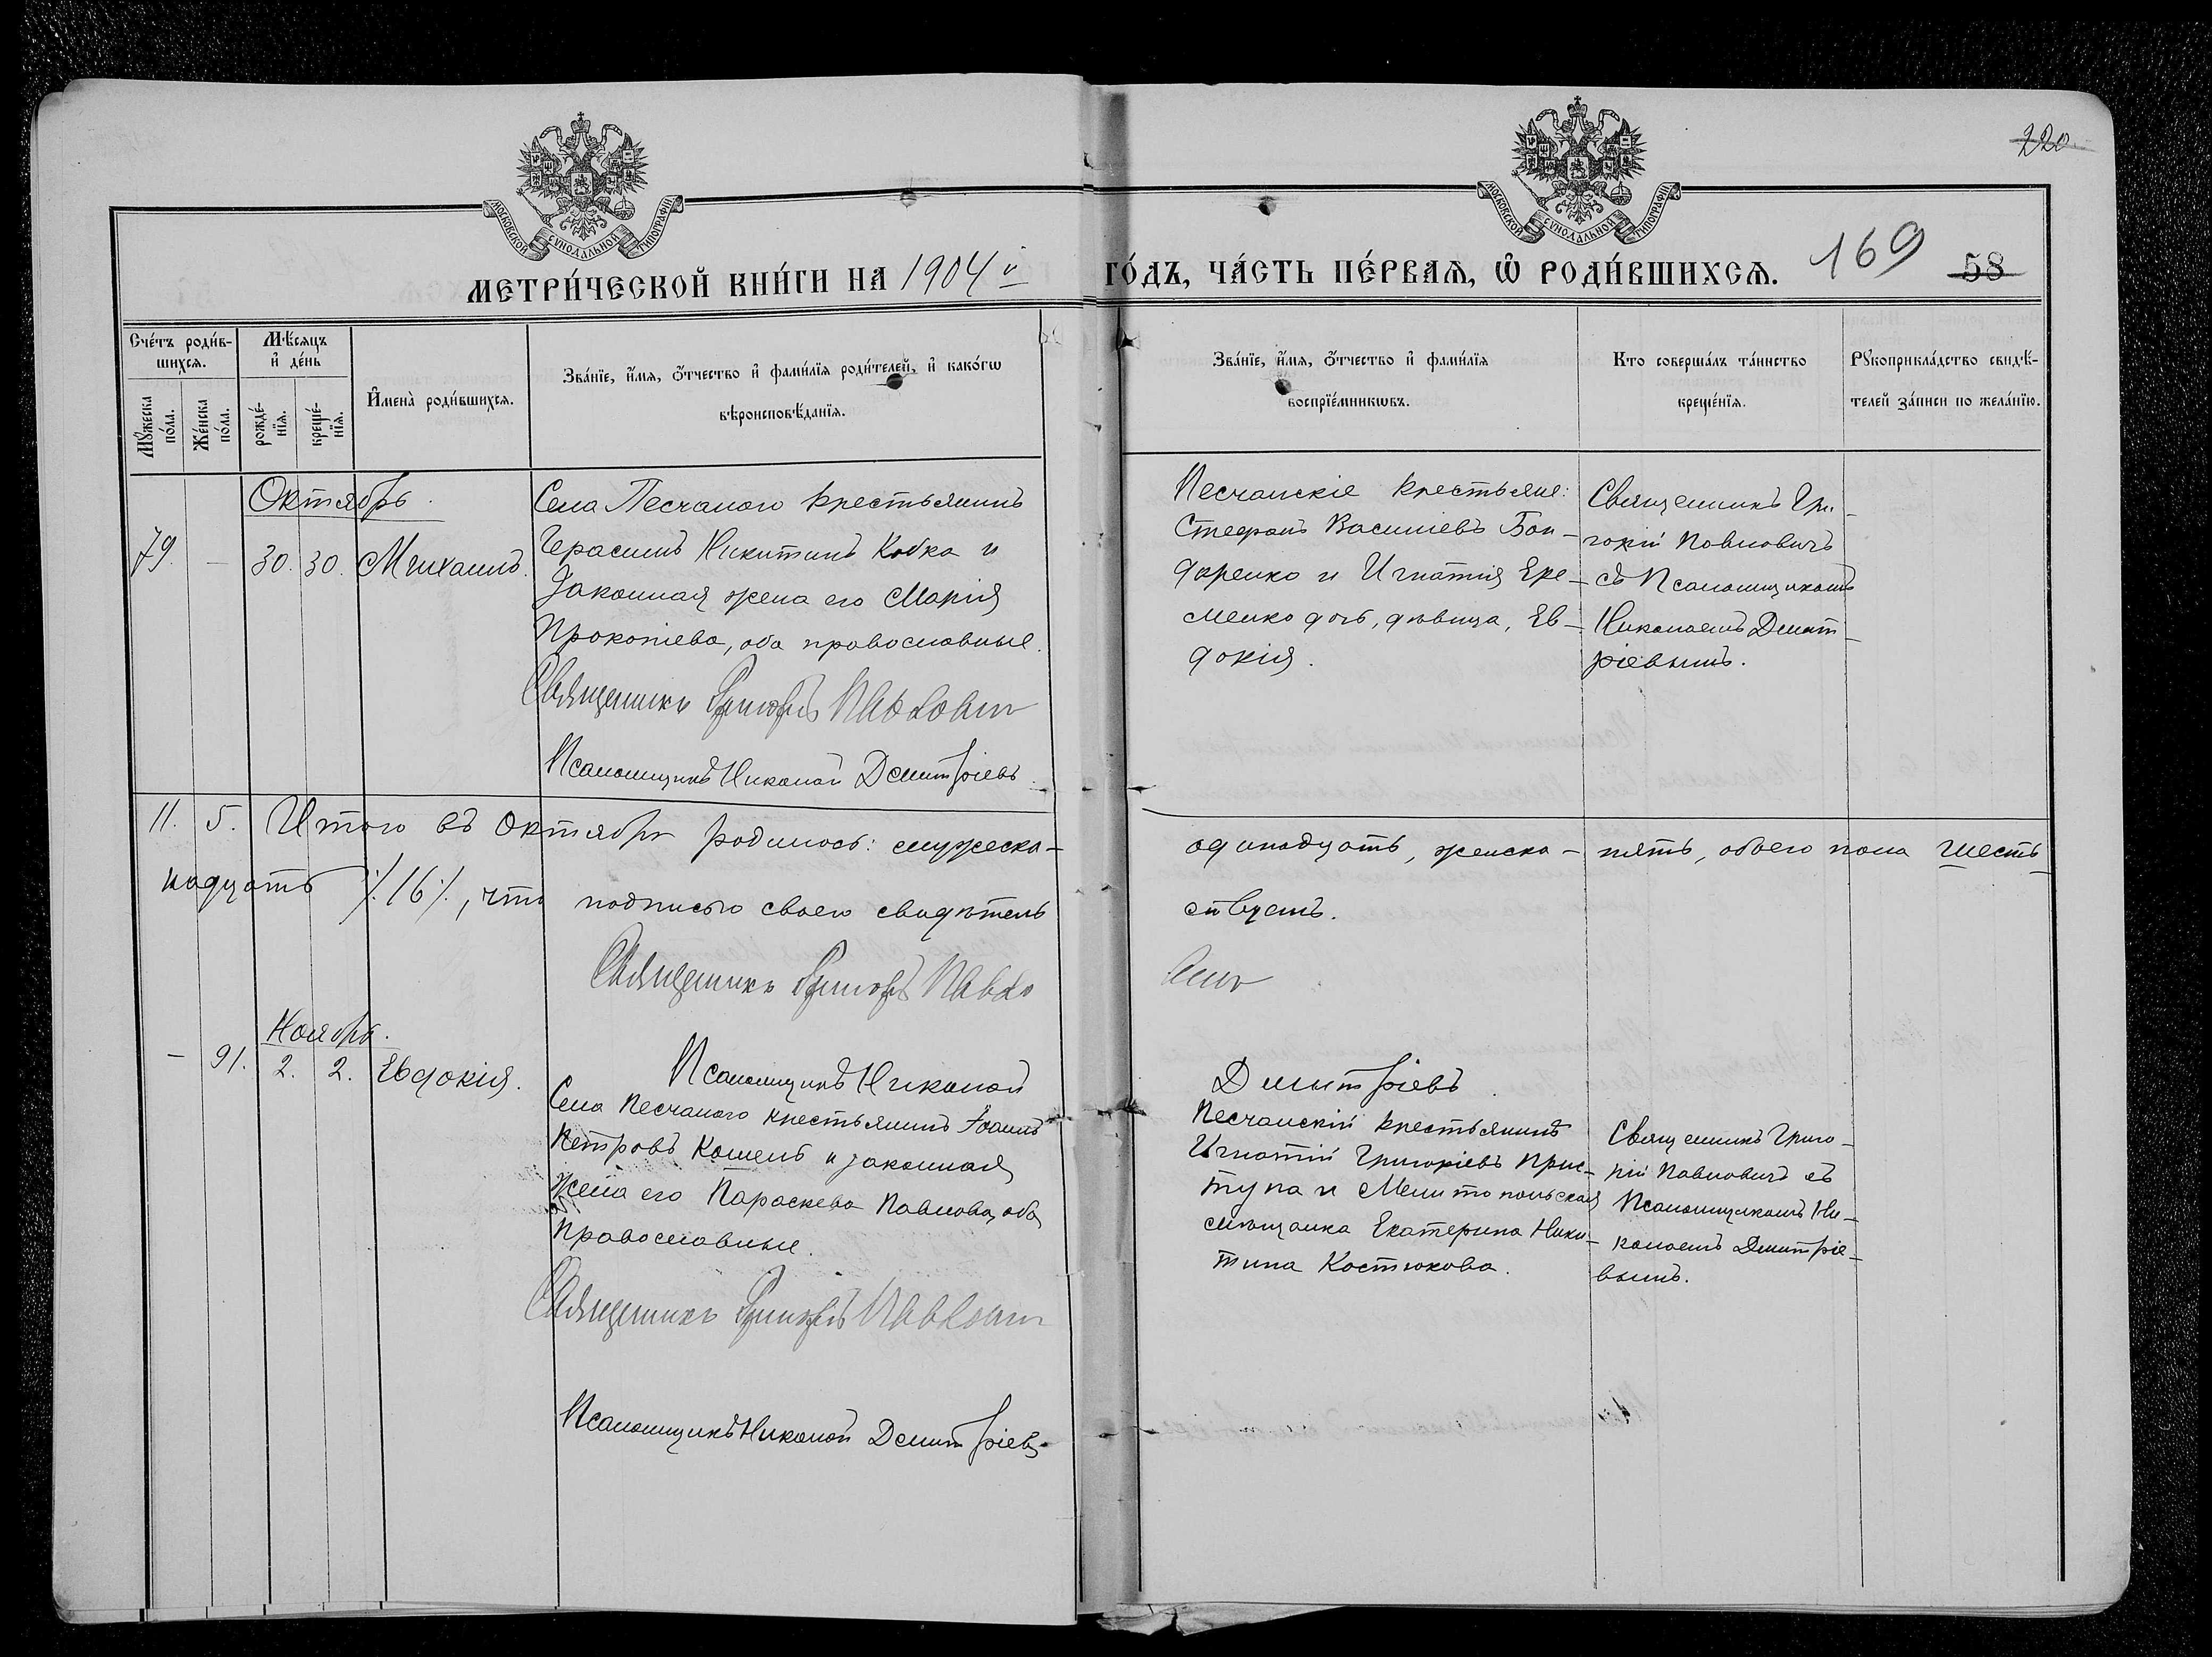 220
МОСКОВСКОЙ СУНОДАЛЬНОЙ ТИПОГРАФІИ
МОСКОВСКОЙ СУНОДАЛЬНОЙ ТИПОГРАФІИ
МЕТРИ́ЧЕСКОЙ КНИ́ГИ НА 1904 й ГО́ДЪ, ЧА́СТЬ ПЕ́РВАѦ, Ѡ҆ РОДИ́ВШИХСѦ. 169 58
Сче́тъ роди́в-
шихсѧ.
Мꙋ́жеска по́ла.
Же́нска по́ла.
Мѣ́сѧцъ
и҆ де́нь
рожде́-
нїѧ.
креще́-
нїѧ.
И҆мена̀ роди́вшихсѧ.
Зва́нїе, и҆́мѧ, ѻ҆́тчество и҆ фами́лїѧ роди́телей, и҆ како́гѡ
вѣроисповѣ́данїѧ.
Зва́нїе, и҆́мѧ, ѻ҆́тчество и҆ фами́лїѧ
воспрїе́мникѡвъ.
Кто совершáлъ та́инство
креще́нїѧ.
Рꙋкоприкла́дство свидѣ́-
телей за́писи по жела́нїю.
Октябрь.
79. — 30. 30. Михаилъ.
Села Песчаного крестьянинъ
Герасимъ Никитинъ Кобка и
законная жена его Марія
Прокопіева, оба православные.
Священникъ Григорій Павловичъ
Псаломщикъ Николай Димитріевъ.
Песчанскіе крестьяне:
Стефанъ Василіевъ Бон-
даренко и Игнатія Ере-
менко дочь, дѣвица, Ев-
докія.
Священникъ Гри-
горій Павловичъ
съ Псаломщикомъ
Николаемъ Димит-
ріевымъ.
11. 5. Итого въ Октябрѣ родилось: мужеска — одинадцать, женска — пять, обоего пола шесть
надцать ./.16./., что подписью своею свидѣтель
ствуемъ.
Священникъ Григорій Павло
вичъ
Ноябрь.
— 91. 2. 2. Евдокія.
Псаломщикъ Николай
Димитріевъ.
Села Песчаного крестьянинъ Іоаннъ
Петровъ Кошель и законная
жена его Параскева Павлова, оба
православные.
Священникъ Григорій Павловичъ
Псаломщикъ Николай Димитріевъ.
Песчанскій крестьянинъ
Игнатій Григоріевъ Прис-
тупа и Мелитопольская
мѣщанка Екатерина Ники-
тина Костюкова.
Священникъ Григо-
рій Павловичъ съ
Псаломщикомъ Ни-
колаемъ Димитріе-
вымъ.